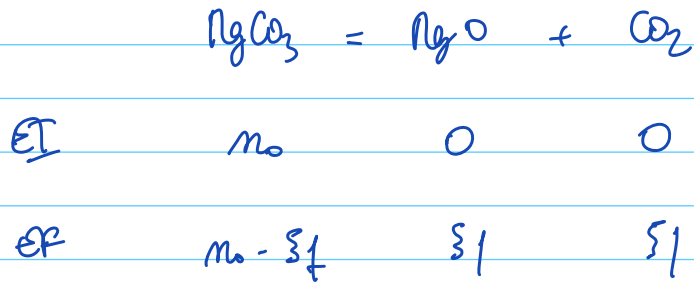 MgCO₃ = MgO + CO₂
EI n₀ 0 0
EF n₀ - ξf ξf ξf